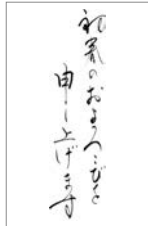 初春のおよろこびを
申し上げます